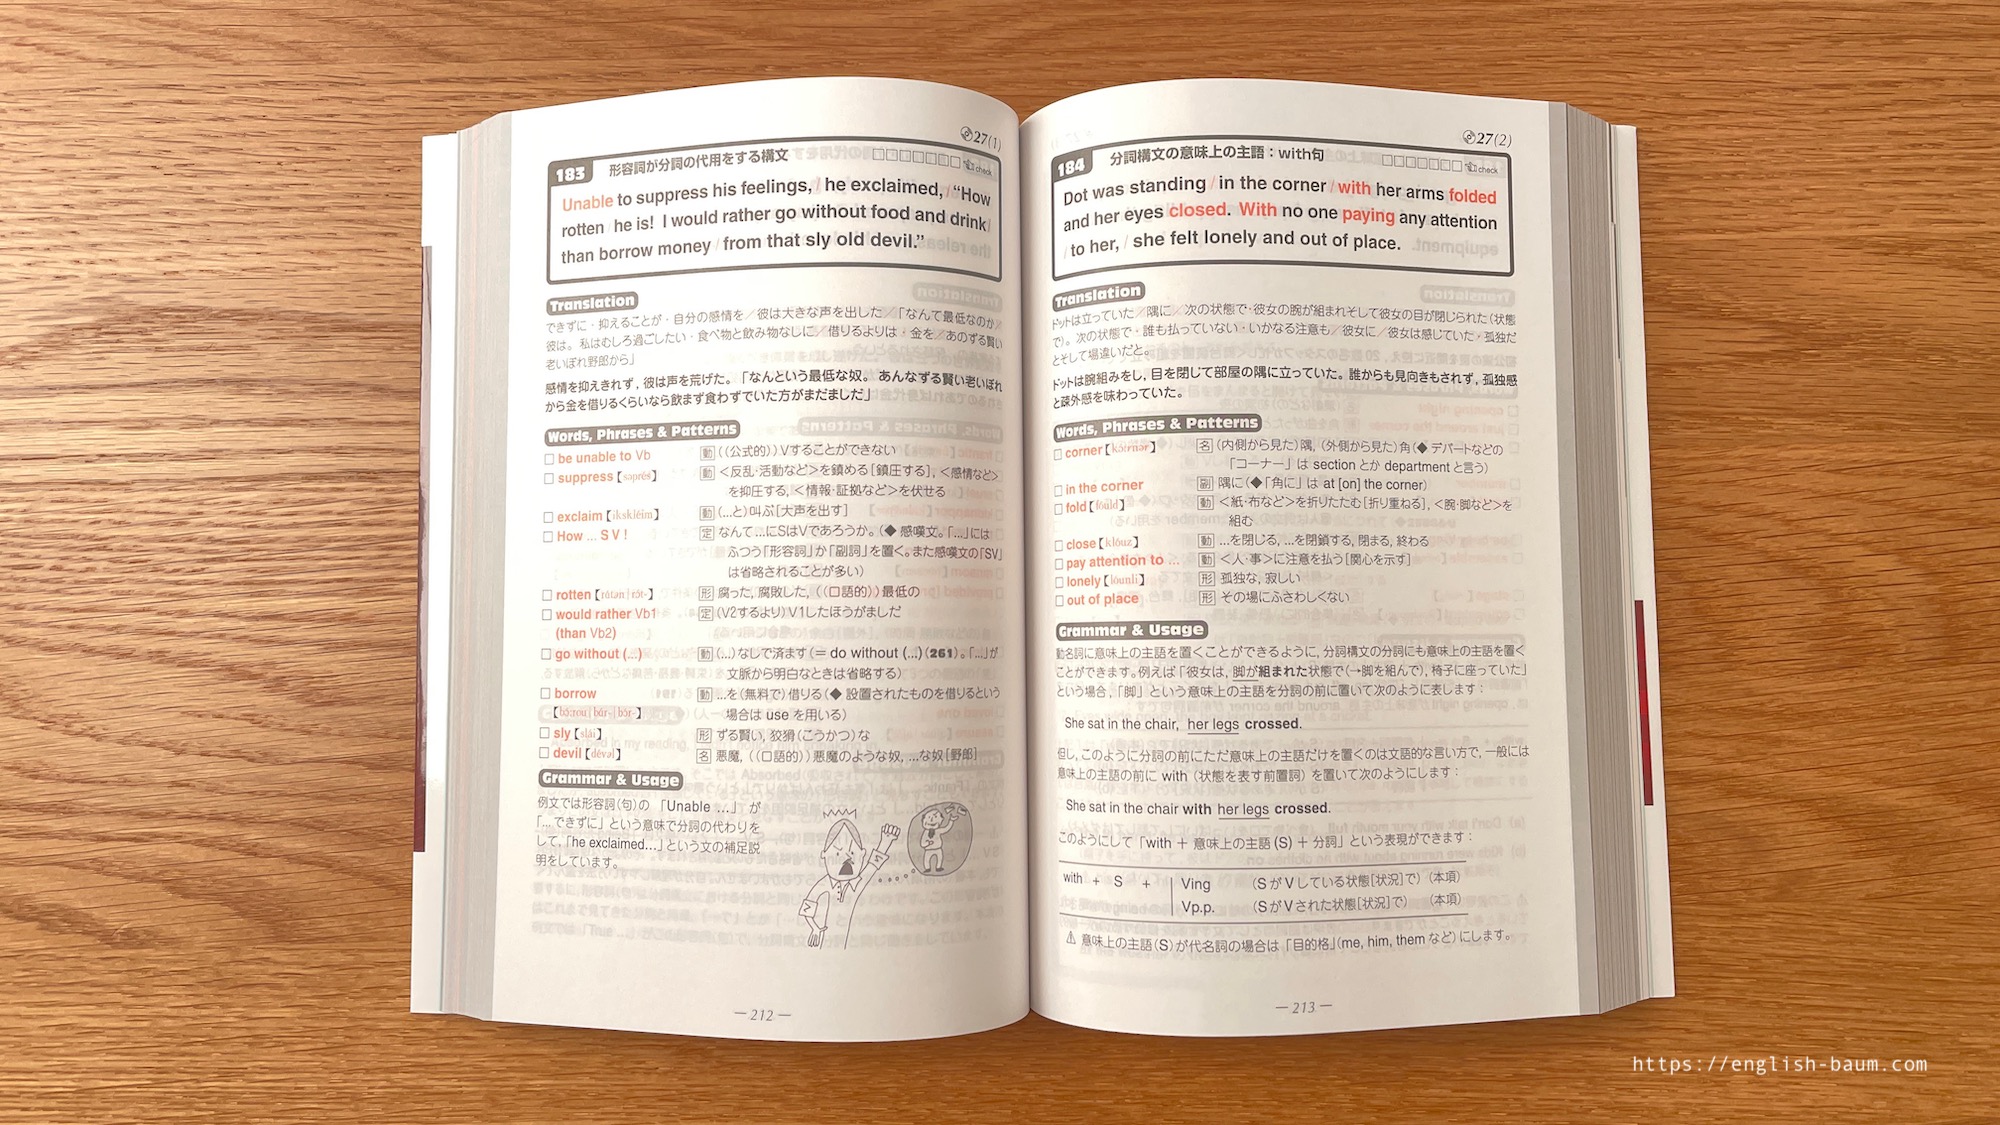 27(1)
183 形容詞が分詞の代用をする構文 □□□□□□□ check
Unable to suppress his feelings, / he exclaimed, / “How
rotten / he is! I would rather go without food and drink /
than borrow money / from that sly old devil.”
Translation
できずに・抑えることが・自分の感情を／彼は大きな声を出した／「なんて最低なのか／
彼は。私はむしろ過ごしたい・食べ物と飲み物なしに／借りるよりは・金を／あのずる賢い
老いぼれ野郎から」
感情を抑えきれず，彼は声を荒げた。「なんという最低な奴。あんなずる賢い老いぼれ
から金を借りるくらいなら飲まず食わずでいた方がまだました」
Words, Phrases & Patterns
□ be unable to Vb 動 ((公式的)) Vすることができない
□ suppress【səprés】 動 ＜反乱・活動など＞を鎮める[鎮圧する]，＜感情など＞
を抑圧する，＜情報・証拠など＞を伏せる
□ exclaim【ikskléim】 動 (...と)叫ぶ[大声を出す]
□ How ... S V ! 定 なんて...にSはVであろうか。(◆ 感嘆文。「...」には
ふつう「形容詞」か「副詞」を置く。また感嘆文の「SV」
は省略されることが多い)
□ rotten【rɑ́tən | rɔ́t-】 形 腐った，腐敗した，((口語的))最低の
□ would rather Vb1 定 (V2するより)V1したほうがましだ
(than Vb2)
□ go without (...) 動 (...)なしで済ます(＝ do without (...)(261)。「...」が
文脈から明白なときは省略する)
□ borrow 動 ...を(無料で)借りる(◆ 設置されたものを借りるという
【bɔ́ːrou | bɑ́r- | bɔ́r-】 場合は use を用いる)
□ sly【slái】 形 ずる賢い，狡猾(こうかつ)な
□ devil【dévəl】 名 悪魔，((口語的))悪魔のような奴，...な奴[野郎]
Grammar & Usage
例文では形容詞(句)の「Unable ...」が
「...できずに」という意味で分詞の代わりを
して，「he exclaimed...」という文の補足説
明をしています。
— 212 —
27(2)
184 分詞構文の意味上の主語：with句 □□□□□□□ check
Dot was standing / in the corner / with her arms folded
and her eyes closed. With no one paying any attention
/ to her, / she felt lonely and out of place.
Translation
ドットは立っていた／隅に／次の状態で・彼女の腕が組まれそして彼女の目が閉じられた(状態
で)。次の状態で・誰も払っていない・いかなる注意も／彼女に／彼女は感じていた・孤独だ
とそして場違いだと。
ドットは腕組みをし，目を閉じて部屋の隅に立っていた。誰からも見向きもされず，孤独感
と疎外感を味わっていた。
Words, Phrases & Patterns
□ corner【kɔ́ːrnər】 名 (内側から見た)隅，(外側から見た)角(◆ デパートなどの
「コーナー」は section とか department と言う)
□ in the corner 副 隅に(◆「角に」は at [on] the corner)
□ fold【fóuld】 動 ＜紙・布など＞を折りたたむ[折り重ねる]，＜腕・脚など＞を
組む
□ close【klóuz】 動 ...を閉じる，...を閉鎖する，閉まる，終わる
□ pay attention to ... 動 ＜人・事＞に注意を払う[関心を示す]
□ lonely【lóunli】 形 孤独な，寂しい
□ out of place 形 その場にふさわしくない
Grammar & Usage
動名詞に意味上の主語を置くことができるように，分詞構文の分詞にも意味上の主語を置く
ことができます。例えば「彼女は，脚が組まれた状態で(→脚を組んで)，椅子に座っていた」
という場合，「脚」という意味上の主語を分詞の前に置いて次のように表します：
She sat in the chair, her legs crossed.
但し，このように分詞の前にただ意味上の主語だけを置くのは文語的な言い方で，一般には
意味上の主語の前に with (状態を表す前置詞)を置いて次のようにします：
She sat in the chair with her legs crossed.
このようにして「with ＋ 意味上の主語(S)＋ 分詞」という表現ができます：
with ＋ S ＋ Ving (SがVしている状態[状況]で) (本項)
Vp.p. (SがVされた状態[状況]で) (本項)
⚠ 意味上の主語(S)が代名詞の場合は「目的格」(me, him, them など)にします。
— 213 —
https://english-baum.com